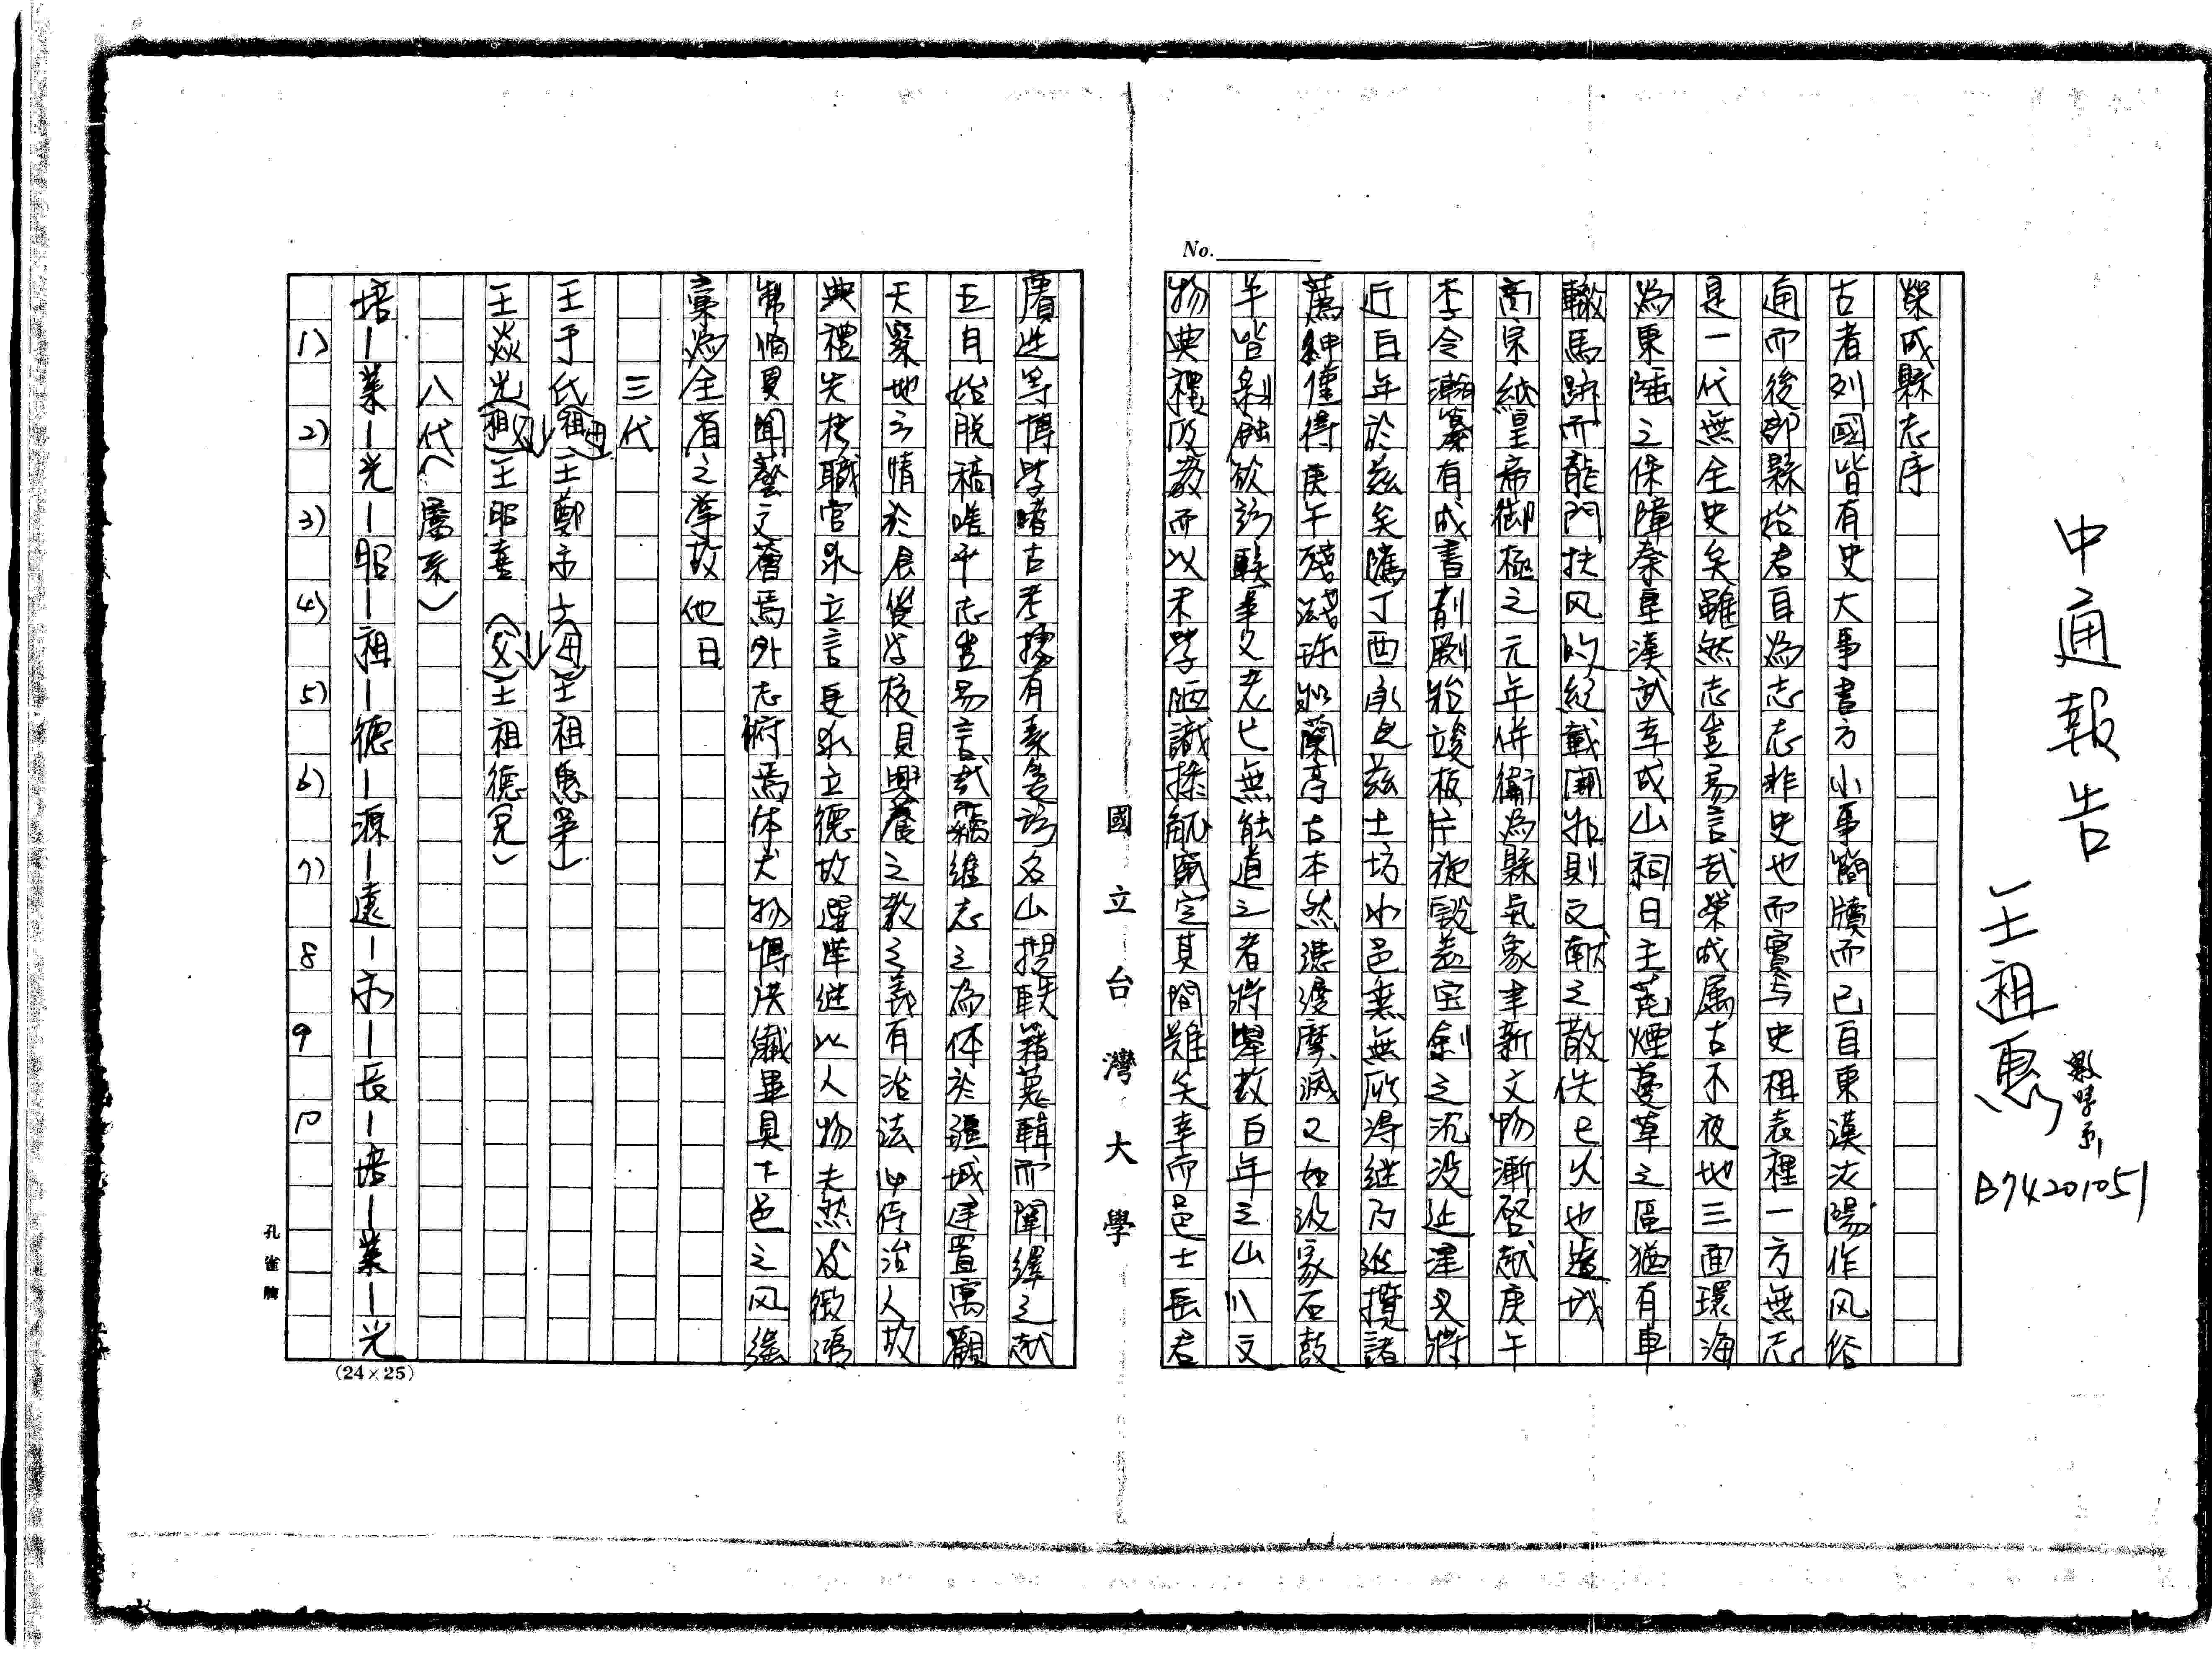 中通報告
王祖惠
數學系
B74201051
No.
榮成縣志序
古者列國皆有史大事書方小事簡牘而已自東漢沈陽作风俗
通而後郡縣始各自為志志非史也而實与史相表裡一方無志
是一代無全史矣雖然志豈易言哉榮成属古不夜地三面環海
為東陲之保障秦皇漢武幸成山祠日主荒煙蔓草之區猶有車
轍馬跡而龍門扶风以紀載開先則文献之散佚已久也造城
高宗純皇帝御極之元年併衛為縣氣象聿新文物漸啓越庚午
李令瀚纂有成書剞劂始竣板片旋毀蓋宝劍之沉没延津又將
近百年於兹矣隲丁酉承乏兹土坊水邑乘無所得継乃延攬諸
薦紳僅得庚午殘誌珎如蘭亭古本然漶漫摩滅又如汲家石鼓
半皆剝蝕欲訪軼事父老已無能道之者將舉数百年之山川文
物典禮政教而以末學陋識操觚竄定其間難矣幸而邑士岳君
廣选等博学嗜古考據有素爰訪名山搜軼籍蒐輯而闡繹之越
五月始脱稿嗟乎志豈易言哉竊維志之為体於疆域建置寓觀
天察地之情於食貨学校見興養之教之義有治法必侍治人故
典禮先於職官永立言更永立德故選舉继以人物夫然後徵鴻
幣脩見聞藝文薈焉外志術焉体大物博洪纖畢具下邑之风謠
稾為全省之掌故他日
三代
王于氏(祖母)↓王鄭示六(母)↓王祖惠(弟)
王焱光(祖父)↓王昭垂(父)↓王祖德(兄)
八代(屬系)
培—業—光—昭—祖—德—源—遠—永—長—培—業—光
1) 2) 3) 4) 5) 6) 7) 8 9 10
(24×25)
國立台灣大學
孔雀牌